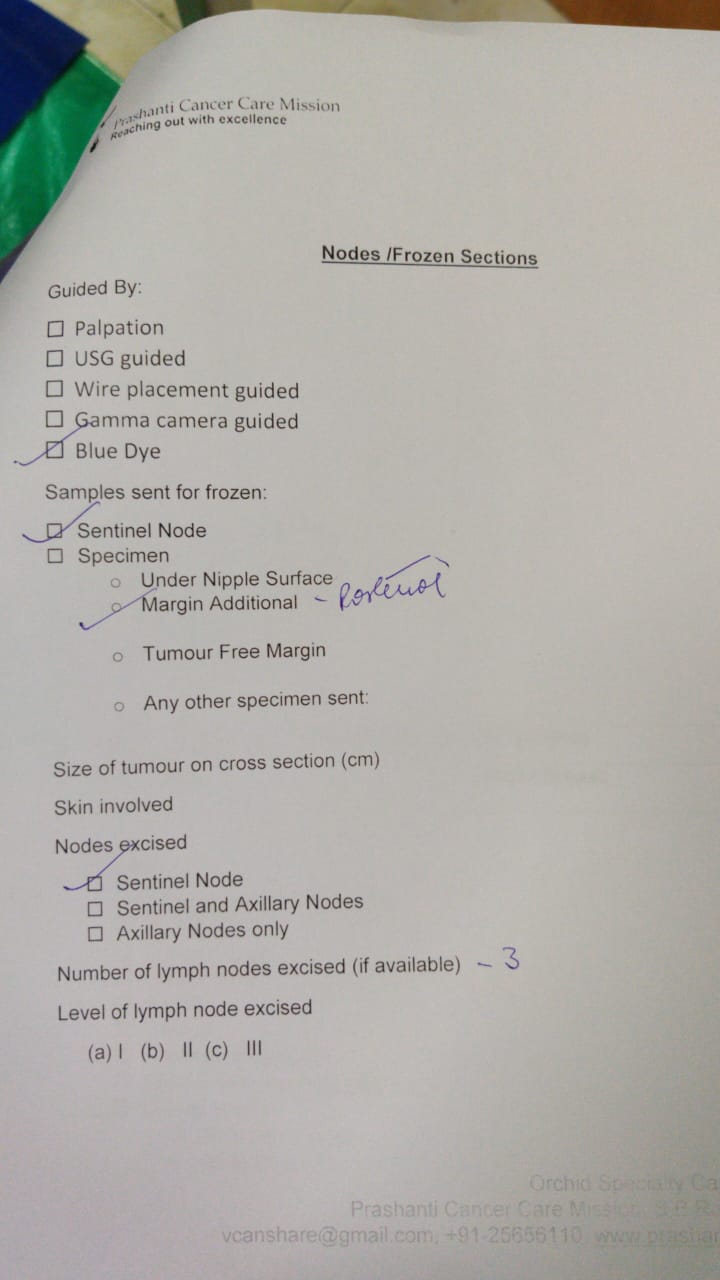 Prashanti Cancer Care Mission
Reaching out with excellence
Nodes /Frozen Sections
Guided By:
☐ Palpation
☐ USG guided
☐ Wire placement guided
☐ Gamma camera guided
☑ Blue Dye
Samples sent for frozen:
☑ Sentinel Node
☐ Specimen
○ Under Nipple Surface
○ Margin Additional -
○ Tumour Free Margin
○ Any other specimen sent:
Size of tumour on cross section (cm)
Skin involved
Nodes excised
☑ Sentinel Node
☐ Sentinel and Axillary Nodes
☐ Axillary Nodes only
Number of lymph nodes excised (if available) - 3
Level of lymph node excised
(a) I (b) II (c) III
Orchid Specialty
Prashanti Cancer Care Mission,
vcanshare@gmail.com, +91-25656110,